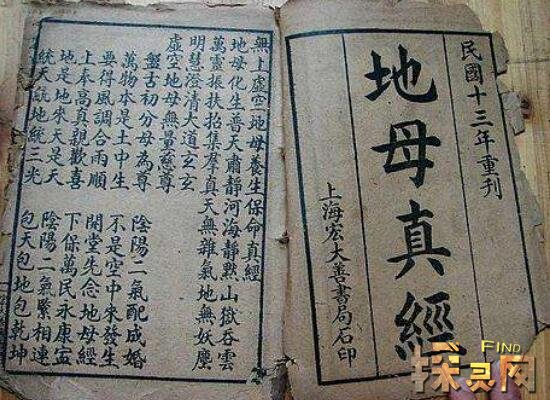 民國十三年重刊
地母真經
上海宏大善書局石印
無上虛空地母養生保命真經
地母化生普天肅靜河海靜默山嶽吞雲
萬靈振扶抬集羣真天無雜氣地無妖塵
明慧澄清大道玄玄
虛空地母無量慈尊
盤古初分母為尊 陰陽二氣配成婚
萬物本是土中生 不是空中來發生
要得風調合雨順 開堂先念地母經
上奉高真親歡喜 下保萬民永康寧
地是地來天是天 陰陽二氣緊相連
統天統地統三光 包天包地包乾坤
FIND
探灵网